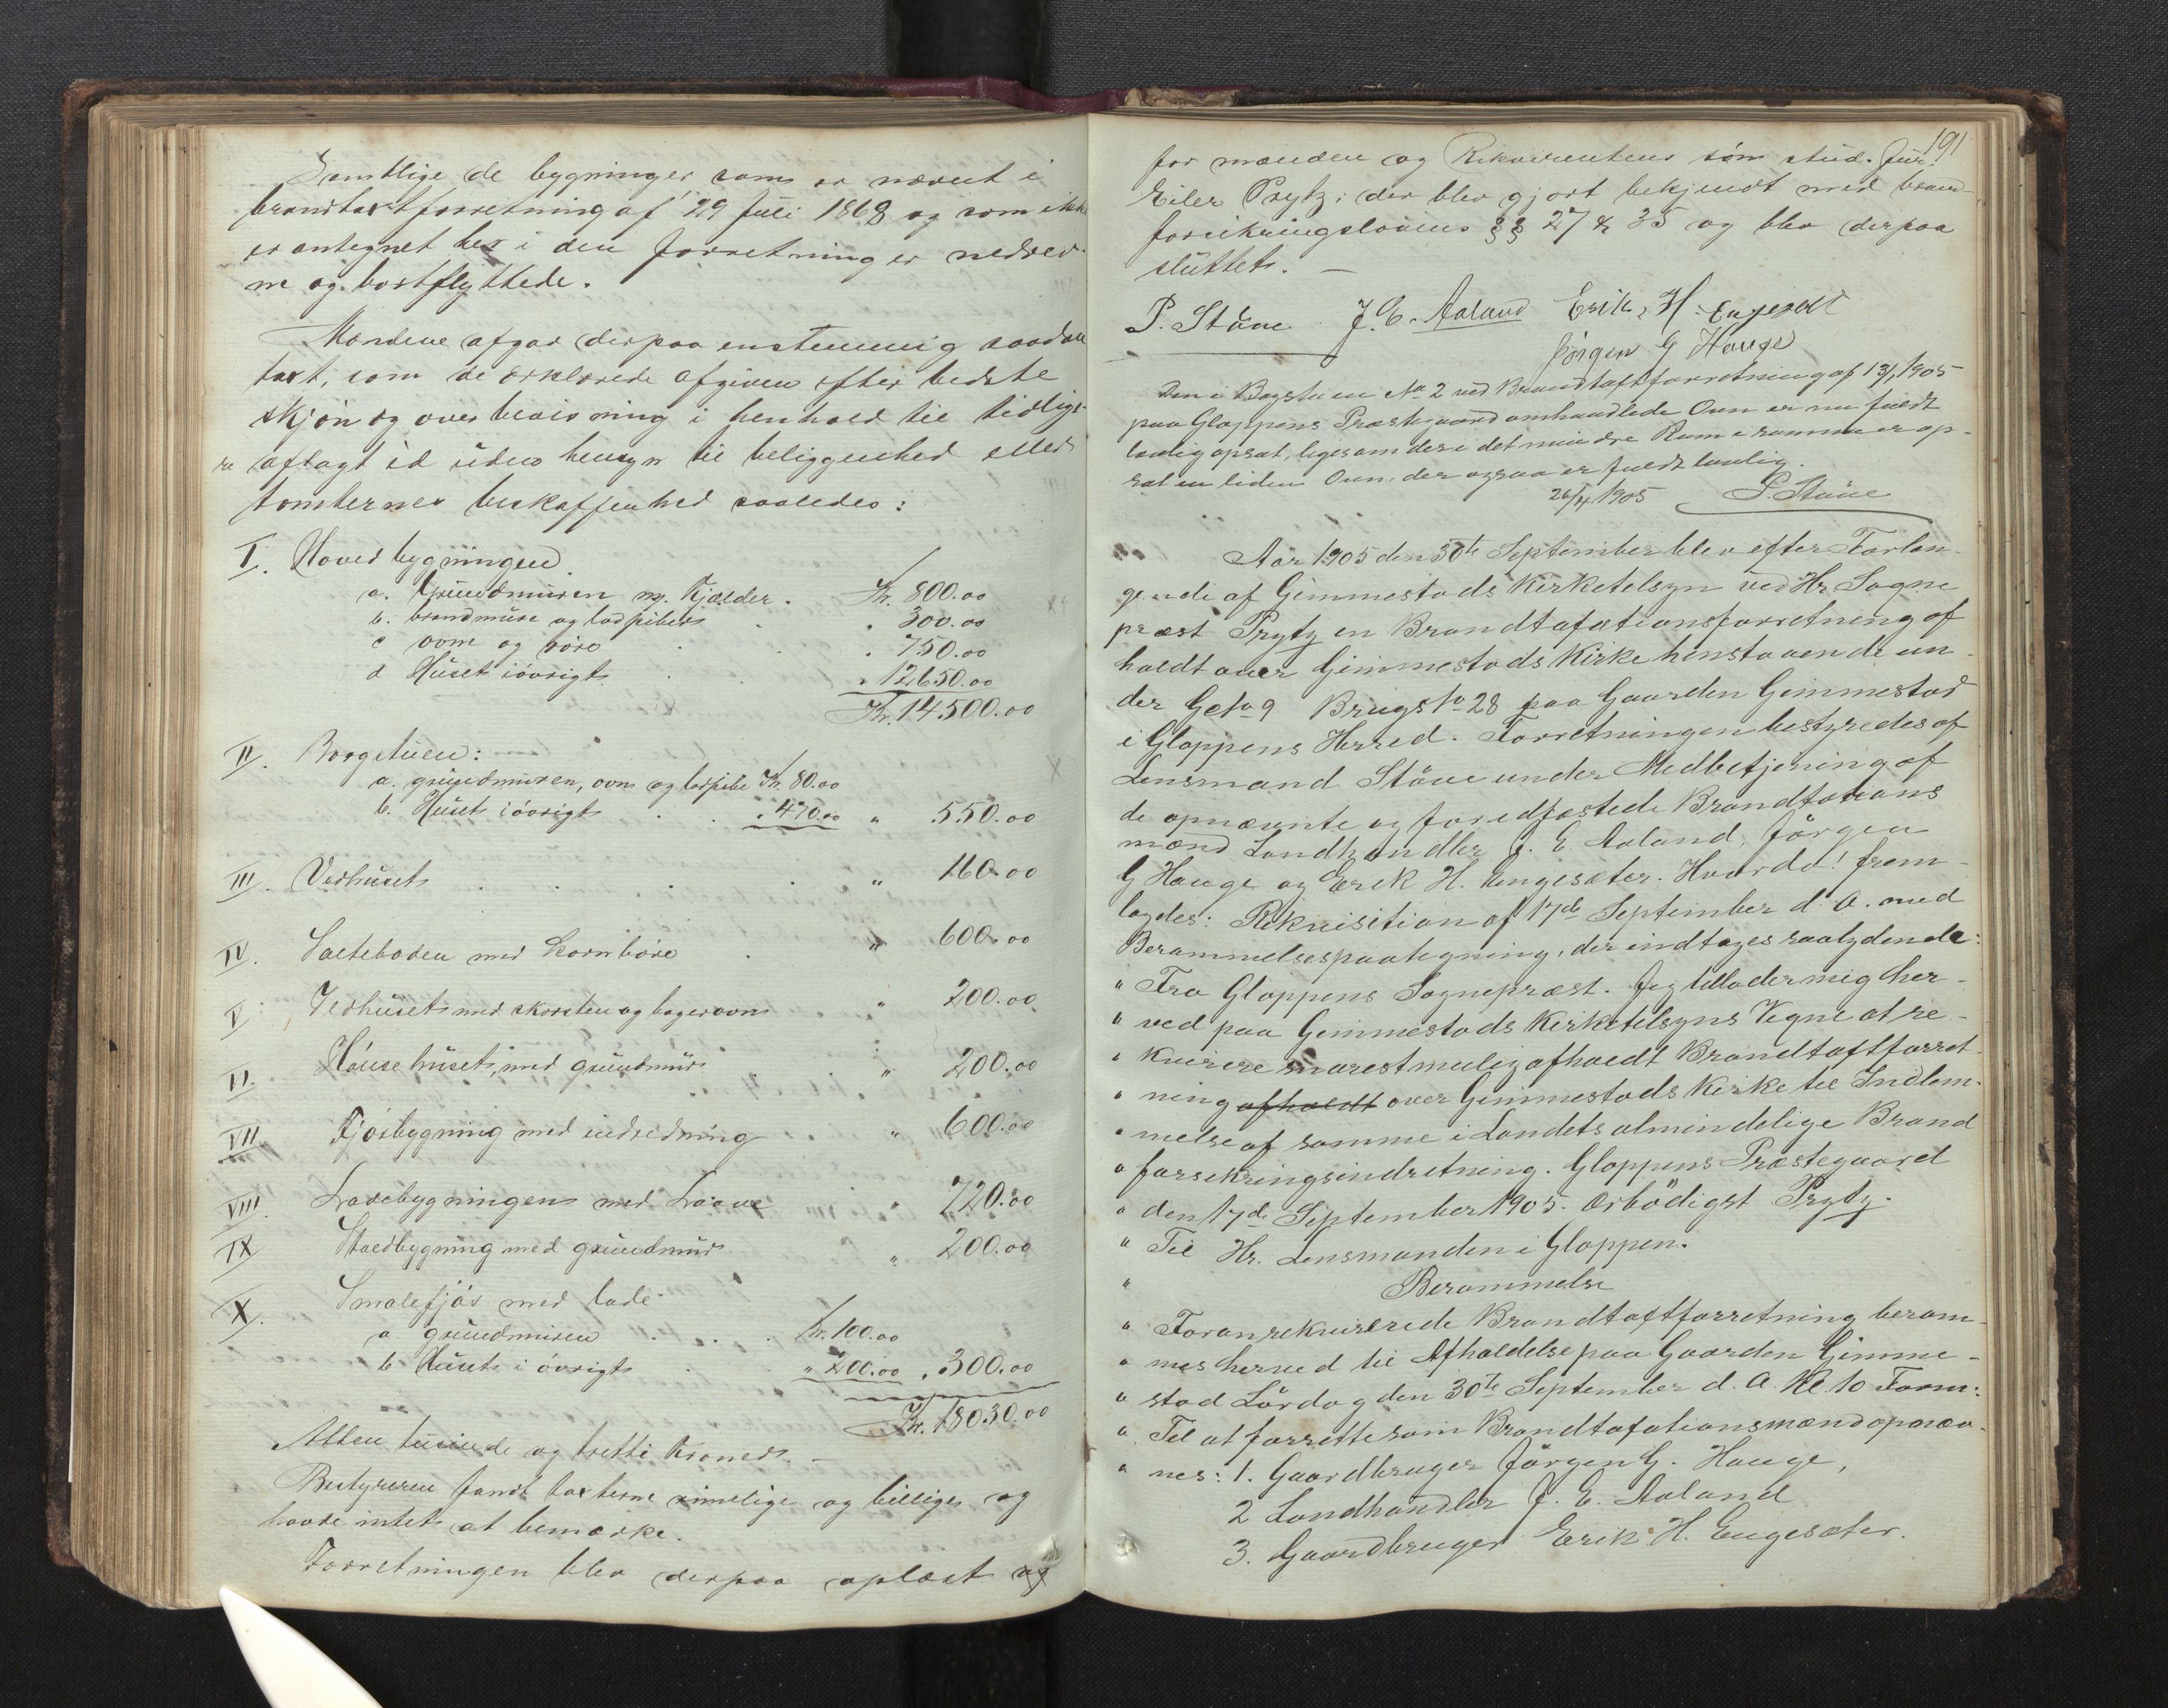 Samtlige de bygninger som er nævnt i
brandtaxtforretning af 29 Juli 1868 og som ikke
er antegnet her i den forretning er nedrev-
ne og bortflyttede.
Mændene afgav derpaa enstemmig saadan
taxt, som de erklærede afgiven efter bedste
skjøn og overbevisning i henhold til tidlige-
re aflagt ed uden hensyn til beliggenhed eller
tomternes beskaffenhed saaledes:
I. Hovedbygningen
a. Grundmuren m. Kjælder. Kr. 800.00
b. brandmure og lodpiber " 300.00
c ovne og rör " 750.00
d Huset iövrigt " 12650.00
Kr. 14.500.00
II. Borgstuen:
a. grundmuren, ovn og lodpibe Kr. 80.00
b. Huset iövrigt " 470.00 " 550.00
III. Vedhuset " 160.00
IV. Salteboden med kornböre " 600.00
V. Ildhuset med skorsten og bagerovn " 200.00
VI. Hönsehuset, med grundmur " 200.00
VII Fjösbygning med indredning " 600.00
VIII. Ladebygningen med Laave " 720.00
IX Staldbygning med grundmur " 200.00
X. Smalefjös med lade
a. grundmuren Kr. 100.00
b Huset i övrigt " 200.00 " 300.00
Kr. 18030.00
Atten tusinde og tretti Kroner. —
Bestyreren fandt taxterne rimelige og billige og
havde intet at bemærke.
Forretningen blev derpaa oplæst og
191
for mændene og Rekvirentens sön stud. jur.
Eiler Prytz; der blev gjort bekjendt med brand-
forsikringslovens §§ 27 & 35 og blev derpaa
sluttet. —
P. Stüve J. E. Aaland Erik H. Engesæt
Jörgen G Hauge
Den i Borgstuen No 2 ved Brandtaxtforretning af 13/1 1905
paa Gloppens Præstegaard omhandlede Ovn er nu fuldt
lovlig opsat, ligesom der i det mindre Rum i samme er op-
sat en liden Ovn, der ogsaa er fuldt lovlig.
26/4 1905 P. Stüve
Aar 1905 den 30te September blev efter Forlan-
gende af Gimmestads Kirketilsyn ved Hr. Sogne
præst Prytz en Brandtaxationsforretning af
holdt over Gimmestads Kirke henstaaende un-
der Gno 9 Brugsno 28 paa Gaarden Gimmestad
i Gloppens Herred. Forretningen bestyredes af
Lensmand Stüve under Medbetjening af
de opnævnte og foredfæstede Brandtaxtions
mænd Landhandler J. E. Aaland, Jörgen
G Hauge og Erik H. Engesæter. Hvorda! frem-
lagdes: Rekvisition af 17de September d. A. med
Berammelsespaategning, der indtages saalydende:
" Fra Gloppens Sognepræst. Jeg tillader mig her-
" ved paa Gimmestads Kirketilsyns Vegne at re-
" kvirere snarest mulig afholdt Brandtaxtforret-
" ning afholdt over Gimmestads Kirke til Indlem-
" melse af samme i Landets almindelige Brand
" forsikringsindretning. Gloppens Præstegaard
" den 17de September 1905. Ærbödigst Prytz.
" Til Hr. Lensmanden i Gloppen.
" Berammelse
" Foranrekvirerede Brandtaxtforretning beram-
" mes herved til Afholdelse paa Gaarden Gimme-
" stad Lördag den 30te September d. A. Kl. 10 Form:
" Til at forrette som Brandtaxationsmænd opnæv-
" nes: 1. Gaardbruger Jörgen G. Hauge,
2 Landhandler J. E. Aaland
3. Gaardbruger Erik H. Engesæter.